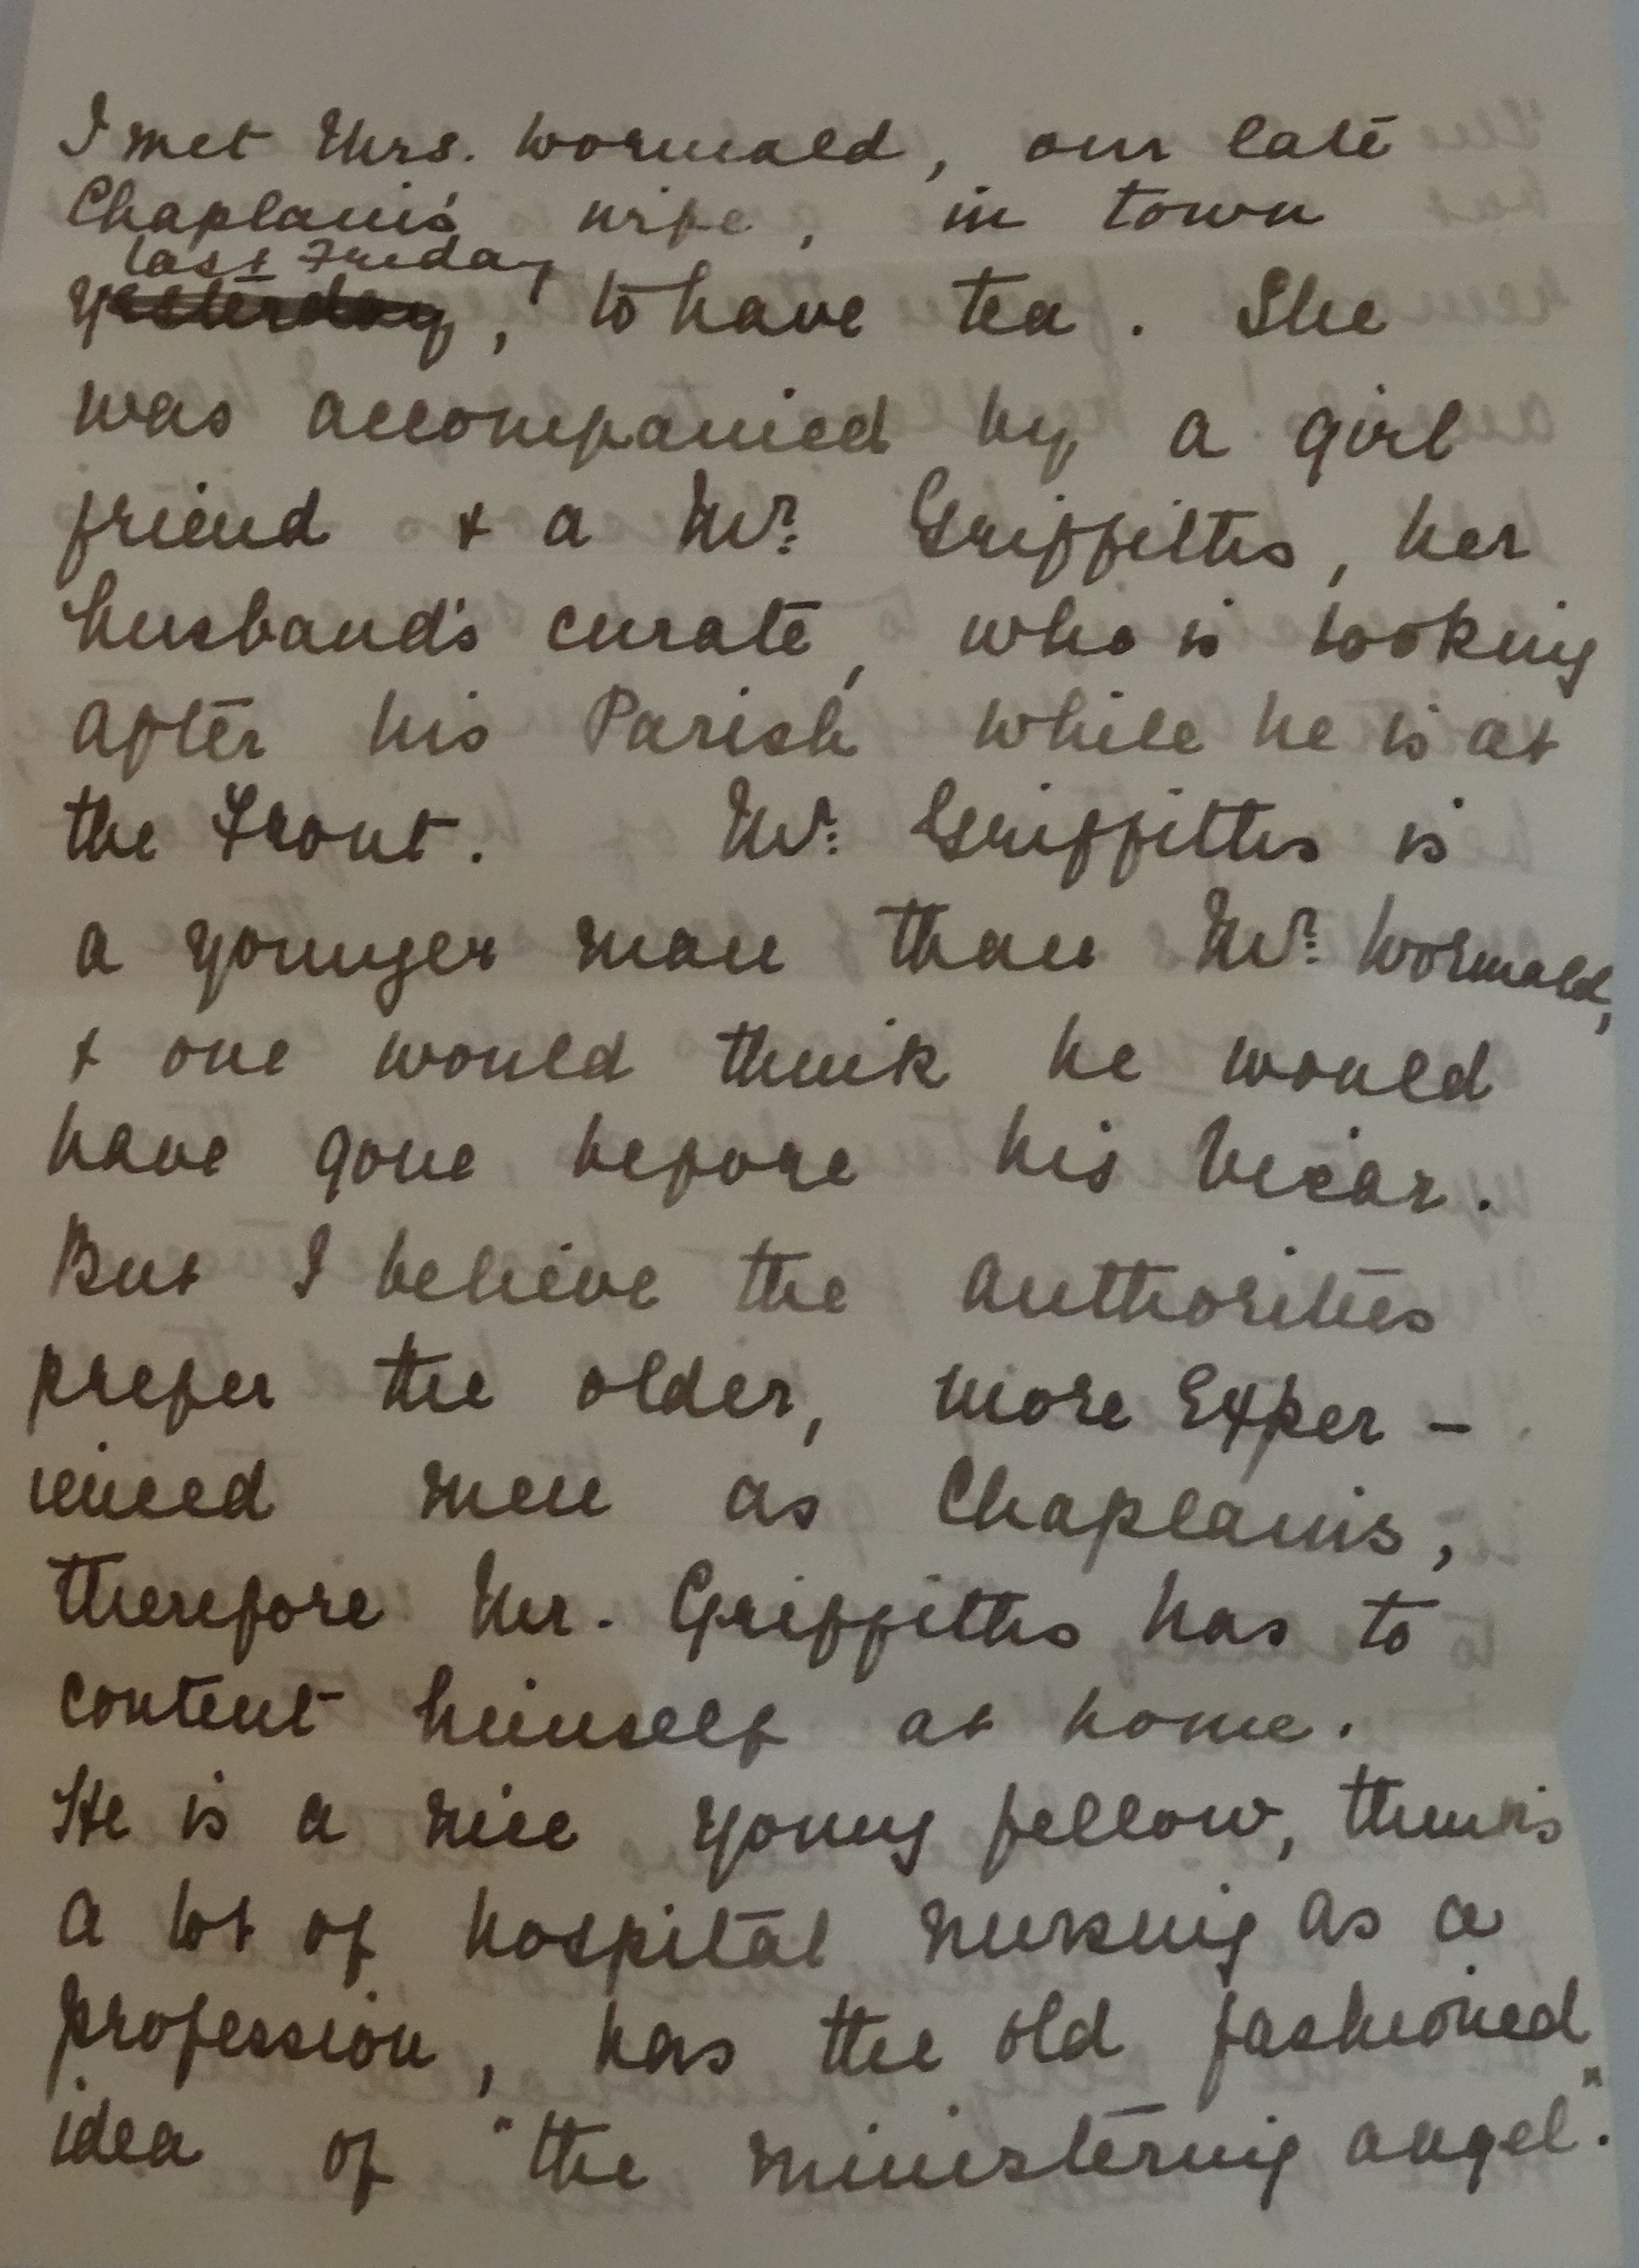 I met Mrs. Wormald, our late
Chaplain's wife, in town
last Friday
yesterday, to have tea. She
was accompanied by a girl
friend & a Mr. Griffiths, her
husband's curate, who is looking
after his Parish while he is at
the Front. Mr. Griffiths is
a younger man than Mr. Wormald,
& one would think he would
have gone before his Vicar.
But I believe the authorities
prefer the older, more Exper-
ienced men as Chaplains,
therefore Mr. Griffiths has to
content himself at home.
He is a nice young fellow, thinks
a lot of hospital nursing as a
profession, has the old fashioned
idea of "the ministering angel".